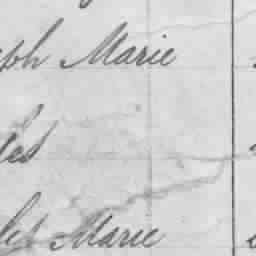 eph Marie
les
les Marie